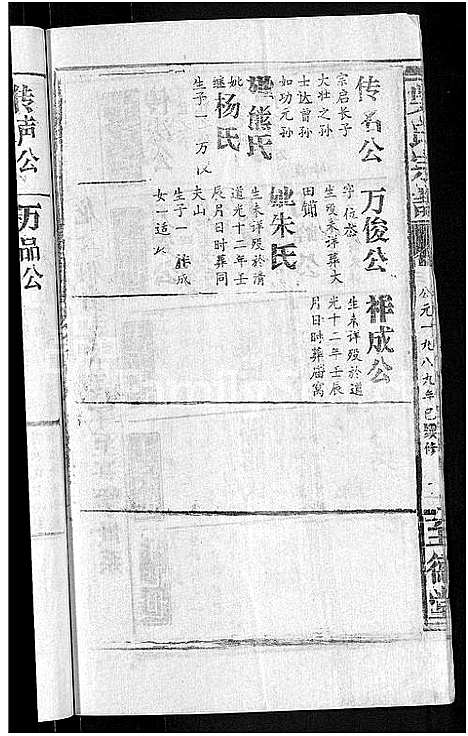 吴氏宗谱
公元一九八九年己巳续修
至德堂
传名公
宗启长子
大壮之孙
士达曾孙
如功元孙
妣熊氏
继杨氏
生子一 万俊
万俊公
字位泰
生殁未详葬大
田铺
妣朱氏
生未详殁於清
道光十二年壬
辰月日时葬同
夫山
生子一 祥成
女一适
祥成公
生未详殁於道
光十二年壬辰
月日时葬庙窝
传声公
万品公